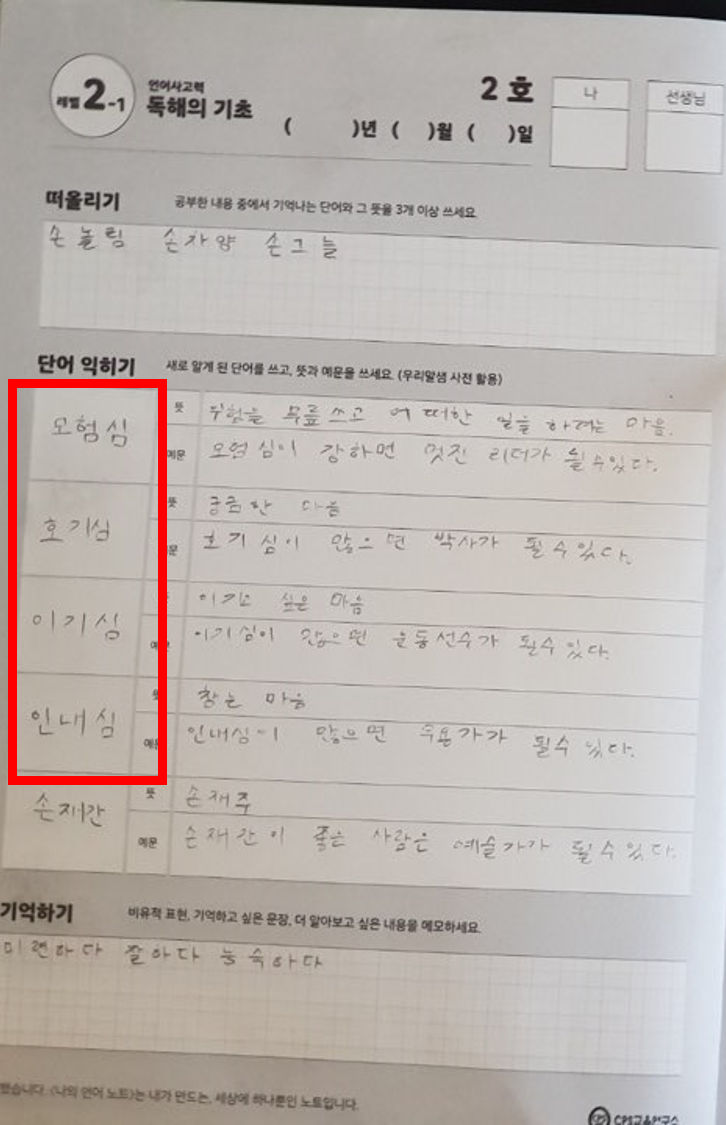 레벨 2-1
언어사고력
독해의 기초
2 호
( )년 ( )월 ( )일
나
선생님
떠올리기
공부한 내용 중에서 기억나는 단어와 그 뜻을 3개 이상 쓰세요.
손놀림 손자양 손그늘
단어 익히기
새로 알게 된 단어를 쓰고, 뜻과 예문을 쓰세요. (우리말샘 사전 활용)
모험심
뜻
위험을 무릎쓰고 어떠한 일을 하려는 마음.
예문
모험심이 강하면 멋진 리더가 될수있다.
호기심
뜻
궁금한 마음
문
호기심이 많으면 박사가 될수있다.
이기심
이기고 싶은 마음
예
이기심이 많으면 운동선수가 될수있다.
인내심
뜻
참는 마음
예문
인내심이 많으면 무용가가 될수있다.
손재간
뜻
손재주
예문
손재간이 좋은 사람은 예술가가 될수있다.
기억하기
비유적 표현, 기억하고 싶은 문장, 더 알아보고 싶은 내용을 메모하세요.
미련하다 잘하다 능숙하다
했습니다. <나의 언어 노트>는 내가 만드는, 세상에 하나뿐인 노트입니다.
CPS교육연구소